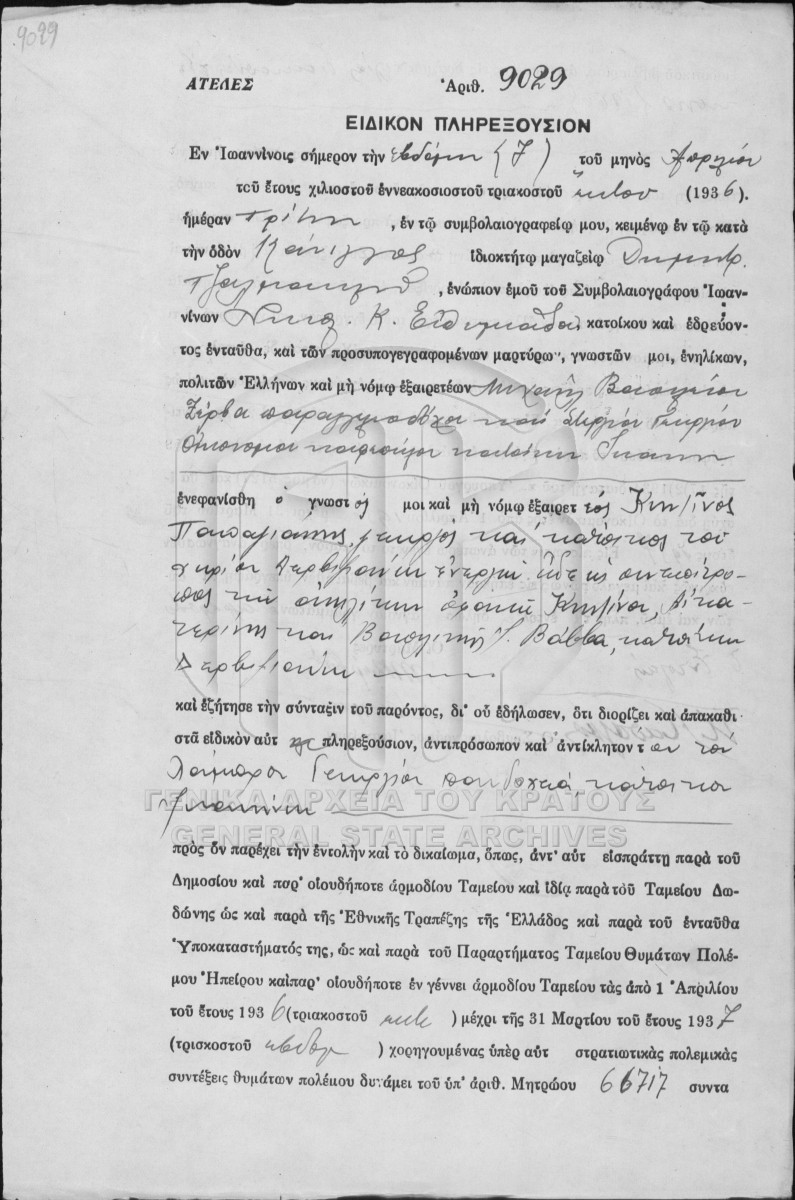 9029
ΑΤΕΛΕΣ Ἀριθ. 9029
ΕΙΔΙΚΟΝ ΠΛΗΡΕΞΟΥΣΙΟΝ
Εν Ἰωαννίνοις σήμερον τὴν ἑβδόμην (7) τοῦ μηνὸς Ἀπριλίου
τοῦ ἔτους χιλιοστοῦ ἐννεακοσιοστοῦ τριακοστοῦ ἕκτου (1936).
ἡμέραν Τρίτην, ἐν τῷ συμβολαιογραφείῳ μου, κειμένῳ ἐν τῷ κατὰ
τὴν ὁδὸν Κάνιγγος ἰδιοκτήτῳ μαγαζείῳ Δημητρ.
, ἐνώπιον ἐμοῦ τοῦ Συμβολαιογράφου Ἰωαν-
νίνων Νικολ. Κ. κατοίκου καὶ ἑδρεύον-
τος ἐνταῦθα, καὶ τῶν προσυπογεγραφομένων μαρτύρων, γνωστῶν μοι, ἐνηλίκων,
πολιτῶν Ἑλλήνων καὶ μὴ νόμῳ ἐξαιρετέων Μιχαὴλ Βασιλείου
Ζέρβα καὶ Στεργίου Γεωργίου
Οἰκονόμου κατοίκων
ἐνεφανίσθη ὁ γνωστός μοι καὶ μὴ νόμῳ ἐξαιρετέος Κωνῖνος
Παπαγιάννης, γεωργὸς καὶ κάτοικος τοῦ
χωρίου ἐνεργῶν ὧδε ὡς συνεπίτρο-
πος τῶν ἀνηλίκων ὀρφανῶν Κωνίνου, Αἰκα-
τερίνης καὶ Βασιλικῆς Βάββα, κατοίκων
καὶ ἐζήτησε τὴν σύνταξιν τοῦ παρόντος, δι' οὗ ἐδήλωσεν, ὅτι διορίζει καὶ ἀπακαθι
στᾶ εἰδικὸν αὐτ πληρεξούσιον, ἀντιπρόσωπον καὶ ἀντίκλητον τον τὸν
Λάμπρον Γεωργίου πανδοχέα, κάτοικον
Ἰωαννίνων
ΓΕΝΙΚΑ ΑΡΧΕΙΑ ΤΟΥ ΚΡΑΤΟΥΣ
GENERAL STATE ARCHIVES
πρὸς ὃν παρέχει τὴν ἐντολὴν καὶ τὸ δικαίωμα, ὅπως, ἀντ' αὐτ εἰσπράττῃ παρὰ τοῦ
Δημοσίου καὶ παρ' οἱουδήποτε ἁρμοδίου Ταμείου καὶ ἰδίᾳ παρὰ τοῦ Ταμείου Δω-
δώνης ὡς καὶ παρὰ τῆς Ἐθνικῆς Τραπέζης τῆς Ἑλλάδος καὶ παρὰ τοῦ ἐνταῦθα
Ὑποκαταστήματός της, ὡς καὶ παρὰ τοῦ Παραρτήματος Ταμείου Θυμάτων Πολέ-
μου Ἠπείρου καὶ παρ' οἱουδήποτε ἐν γέννει ἁρμοδίου Ταμείου τὰς ἀπὸ 1 Ἀπριλίου
τοῦ ἔτους 1936 (τριακοστοῦ ἕκτου) μέχρι τῆς 31 Μαρτίου τοῦ ἔτους 1937
(τρισκοστοῦ ἑβδόμου) χορηγουμένας ὑπὲρ αὐτ στρατιωτικὰς πολεμικὰς
συντέξεις θυμάτων πολέμου δυνάμει τοῦ ὑπ' ἀριθ. Μητρώου 66717 συντα